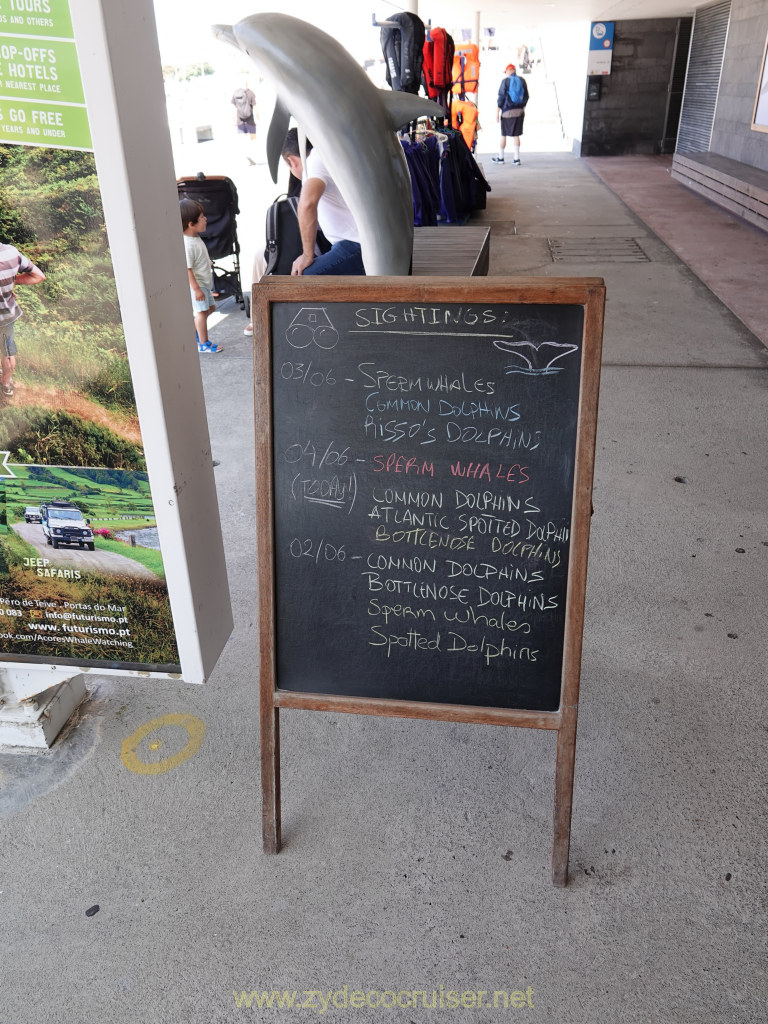 TOURS
S AND OTHERS
OP-OFFS
HOTELS
NEAREST PLACE
S GO FREE
YEARS AND UNDER
JEEP
SAFARIS
Pêro de Teive . Portas do Mar
0 083 info@futurismo.pt
www.futurismo.pt
ook.com/AcoresWhaleWatching
SIGHTINGS:
03/06 - SPERM WHALES
COMMON DOLPHINS
RISSO'S DOLPHINS
04/06 - SPERM WHALES
(TODAY!) COMMON DOLPHINS
ATLANTIC SPOTTED DOLPHIN
BOTTLENOSE DOLPHINS
02/06 - COMMON DOLPHINS
BOTTLENOSE DOLPHINS
Sperm Whales
Spotted Dolphins
www.zydecocruiser.net